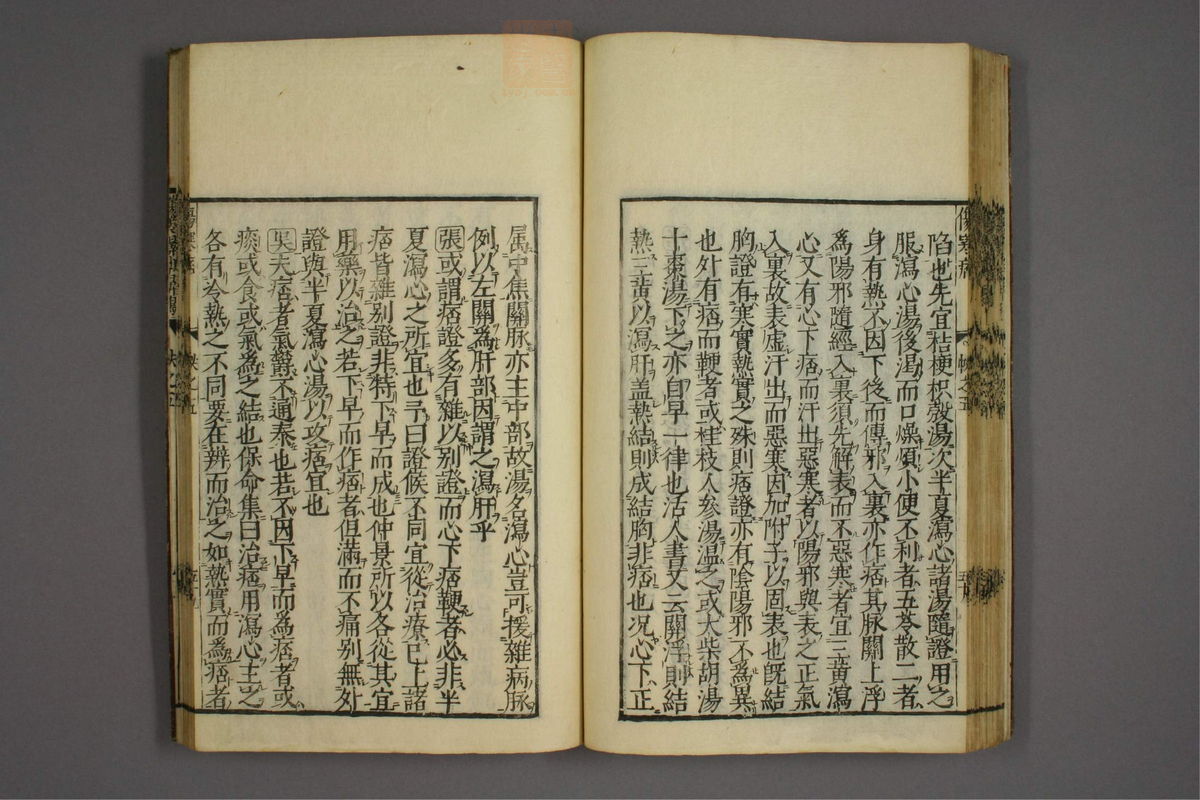 陷也先宜桔梗枳殼湯次半夏瀉心諸湯隨證用之
服瀉心湯後渴而口燥煩小便不利者五苓散二者
身有熱不因下後而傳邪入裏亦作痞其脉關上浮
爲陽邪隨經入裏須先解表而不惡寒者宜三黃瀉
心又有心下痞而汗出惡寒者以陽邪與表之正氣
入裏故表虛汗出而惡寒因加附子以固表也旣結
胸證有寒實熱實之殊則痞證亦有陰陽邪不爲異
也外有痞而鞕者或桂枝人參湯溫之或大柴胡湯
十棗湯下之亦自早一律也活人書又云關浮則結
熱三黃以瀉肝盖熱結則成結胸非痞也况心下正
属中焦關脉亦主中部故湯名瀉心豈可援雜病脉
例以左關爲肝部因謂之瀉肝乎
張或謂痞證多有雜以别證而心下痞鞕者必非半
夏瀉心之所宜也予曰證候不同宜從治療已上諸
痞皆雜别證非特下早而成也仲景所以各從其宜
用藥以治之若下早而作痞者但滿而不痛别無外
證與半夏瀉心湯以攻痞宜也
吴夫痞者氣鬱不通泰也若不因下早而爲痞者或
痰或食或氣爲之結也保命集曰治痞用瀉心主之
各有冷熱之不同要在辨而治之如熱實而爲痞者